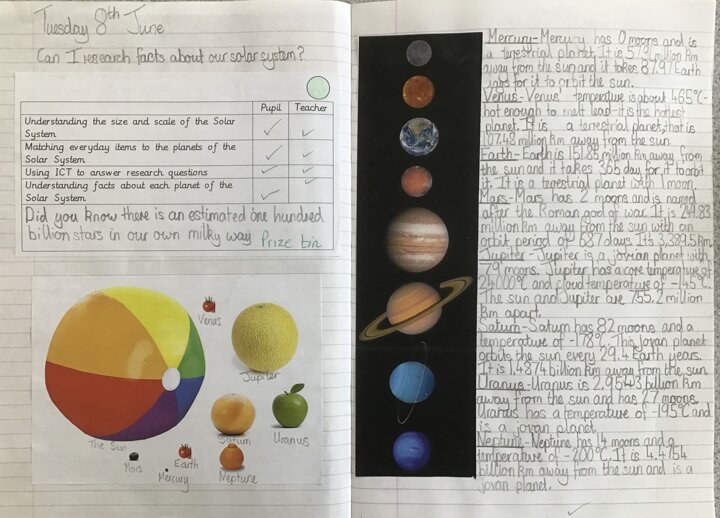 Tuesday 8th June
Can I research facts about our solar system?
Pupil Teacher
Understanding the size and scale of the Solar
System
Matching everyday items to the planets of the
Solar System
Using ICT to answer research questions
Understanding facts about each planet of the
Solar System
Did you know there is an estimated one hundred
billion stars in our own milky way Prize bin
Venus
Jupiter
The Sun
Saturn
Uranus
Mars
Earth
Mercury
Neptune
Mercury-Mercury has 0 moons and is
a terrestrial planet. It is million km
away from the sun and it takes 87.97 Earth
for it to orbit the sun.
Venus-Venus temperature is about 465°C-
hot enough to melt lead-it is the hottest
planet. It is a terrestrial planet, that is
107.48 million km away from the sun
Earth-Earth is 151.85 million km away from
the sun and it takes 365 day for it to orbit
it. It is a terrestrial planet with 1 moon.
Mars-Mars has 2 moons and is named
after the Roman god of war. It is
million km away from the sun with an
orbit period of 687 days. It's 3,389.5 km.
Jupiter-Jupiter is a jovian planet with
79 moons. Jupiter has a core temperature of
24000°C and cloud temperature of -145°C.
The sun and Jupiter are 755.2 million
km apart.
Saturn-Saturn has 82 moons and a
temperature of -178°C. This jovan planet
orbits the sun every 29.4 Earth years.
It is 1.4874 billion km away from the sun.
Uranus-Uranus is 2.9543 billion km
away from the sun and has 27 moons.
Uranus has a temperature of -195°C and
is a jovan planet.
Neptune-Neptune has 14 moons and a
temperature of -200°C. It is 4.4754
billion km away from the sun and is a
jovan planet.